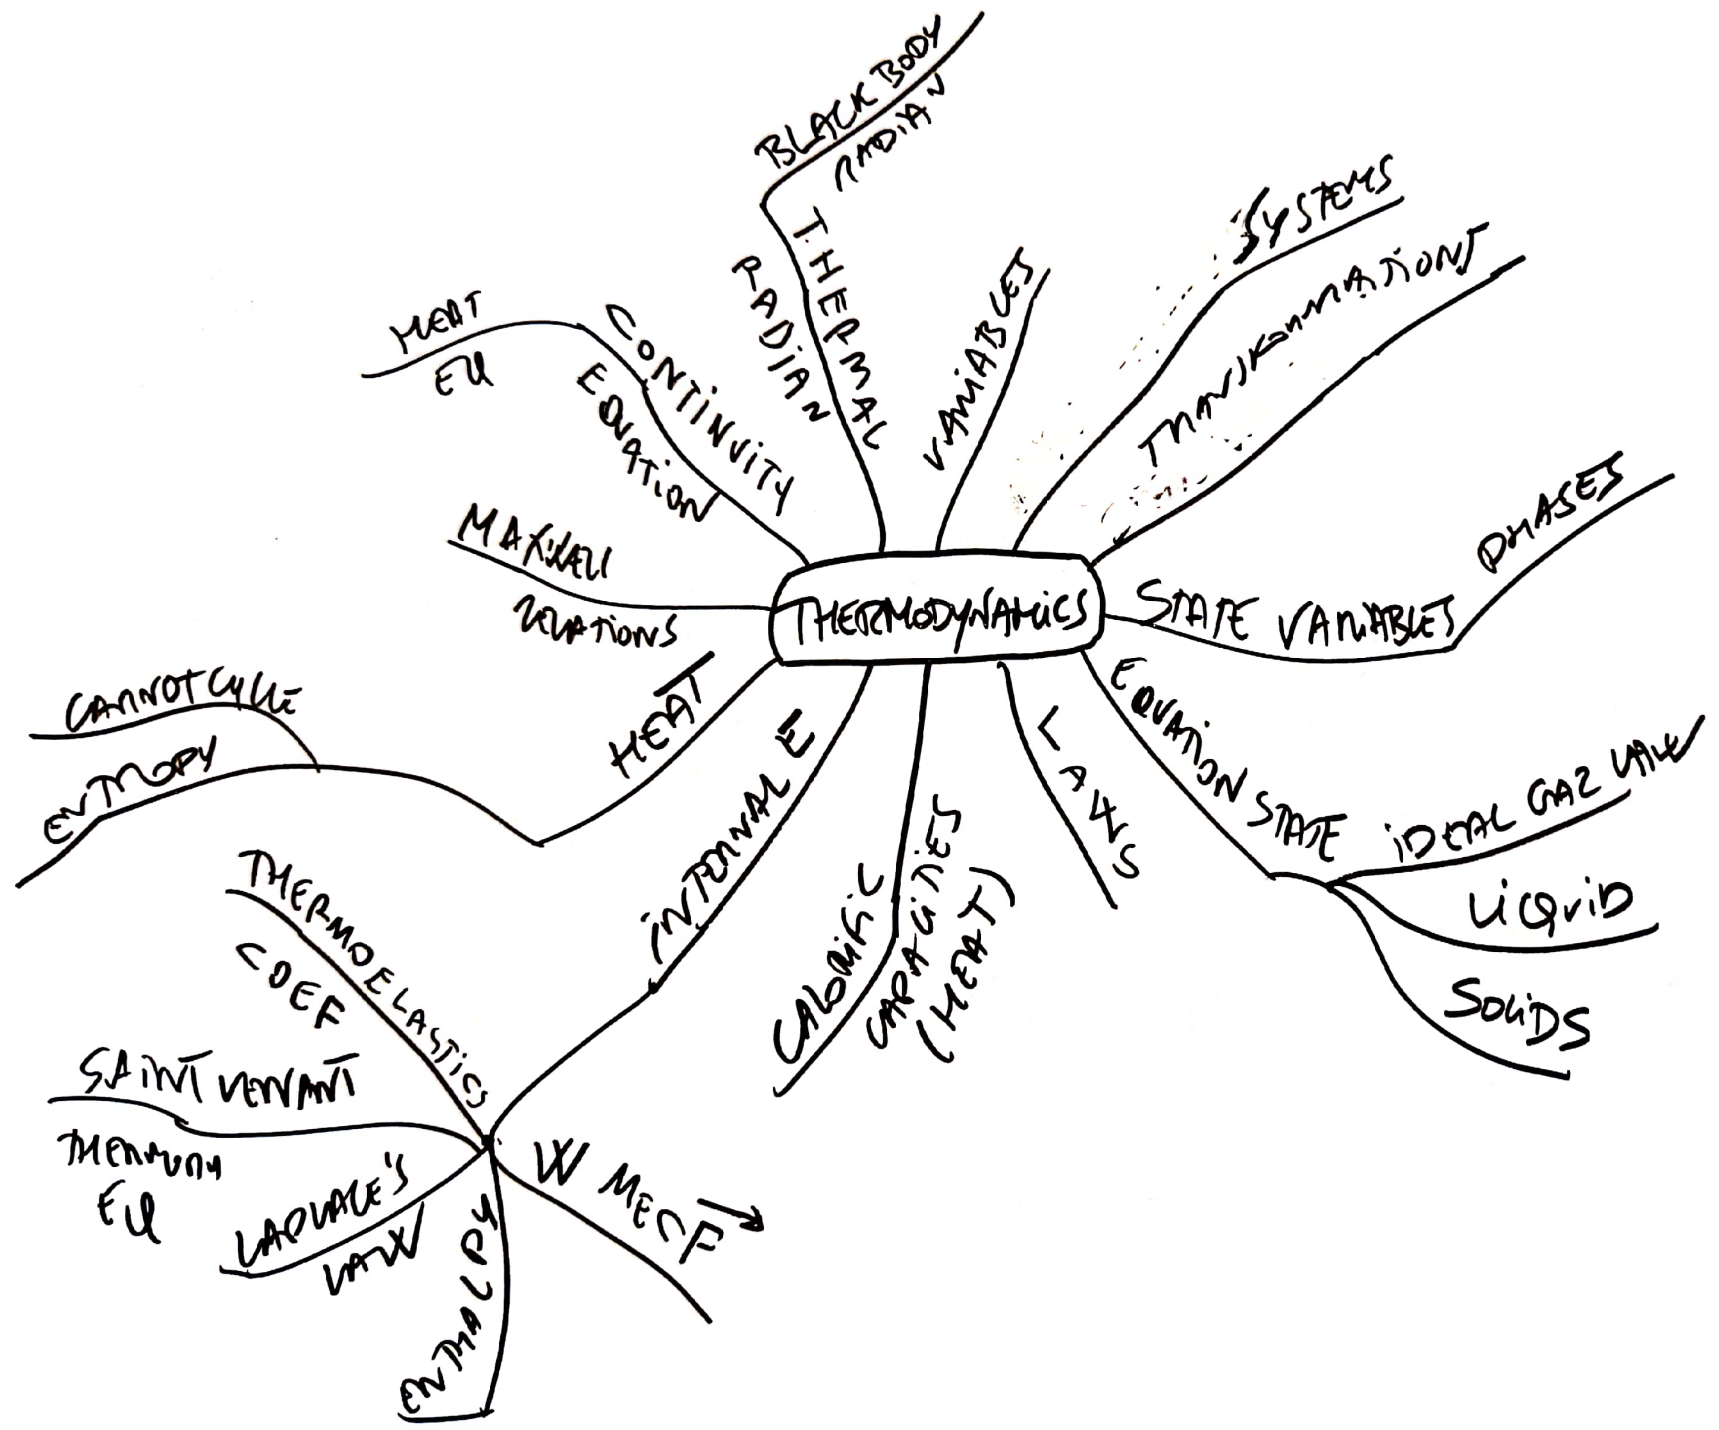 THERMODYNAMICS
BLACK BODY
RADIAN
THERMAL
RADIAN
VARIABLES
SYSTEMS
TRANSFORMATIONS
STATE VARIABLES
PHASES
EQUATION STATE
IDEAL GAZ LAW
LIQUID
SOLIDS
LAWS
CALORIFIC
CAPACITIES
(HEAT)
INTERNAL E
W MEC F
ENTHALPY
LAPLACE'S
LAW
SAINT VENANT
EQ
THERMOELASTICS
COEF
HEAT
CARNOT CYCLE
ENTROPY
MAXWELL
RELATIONS
CONTINUITY
EQUATION
HEAT
EQ